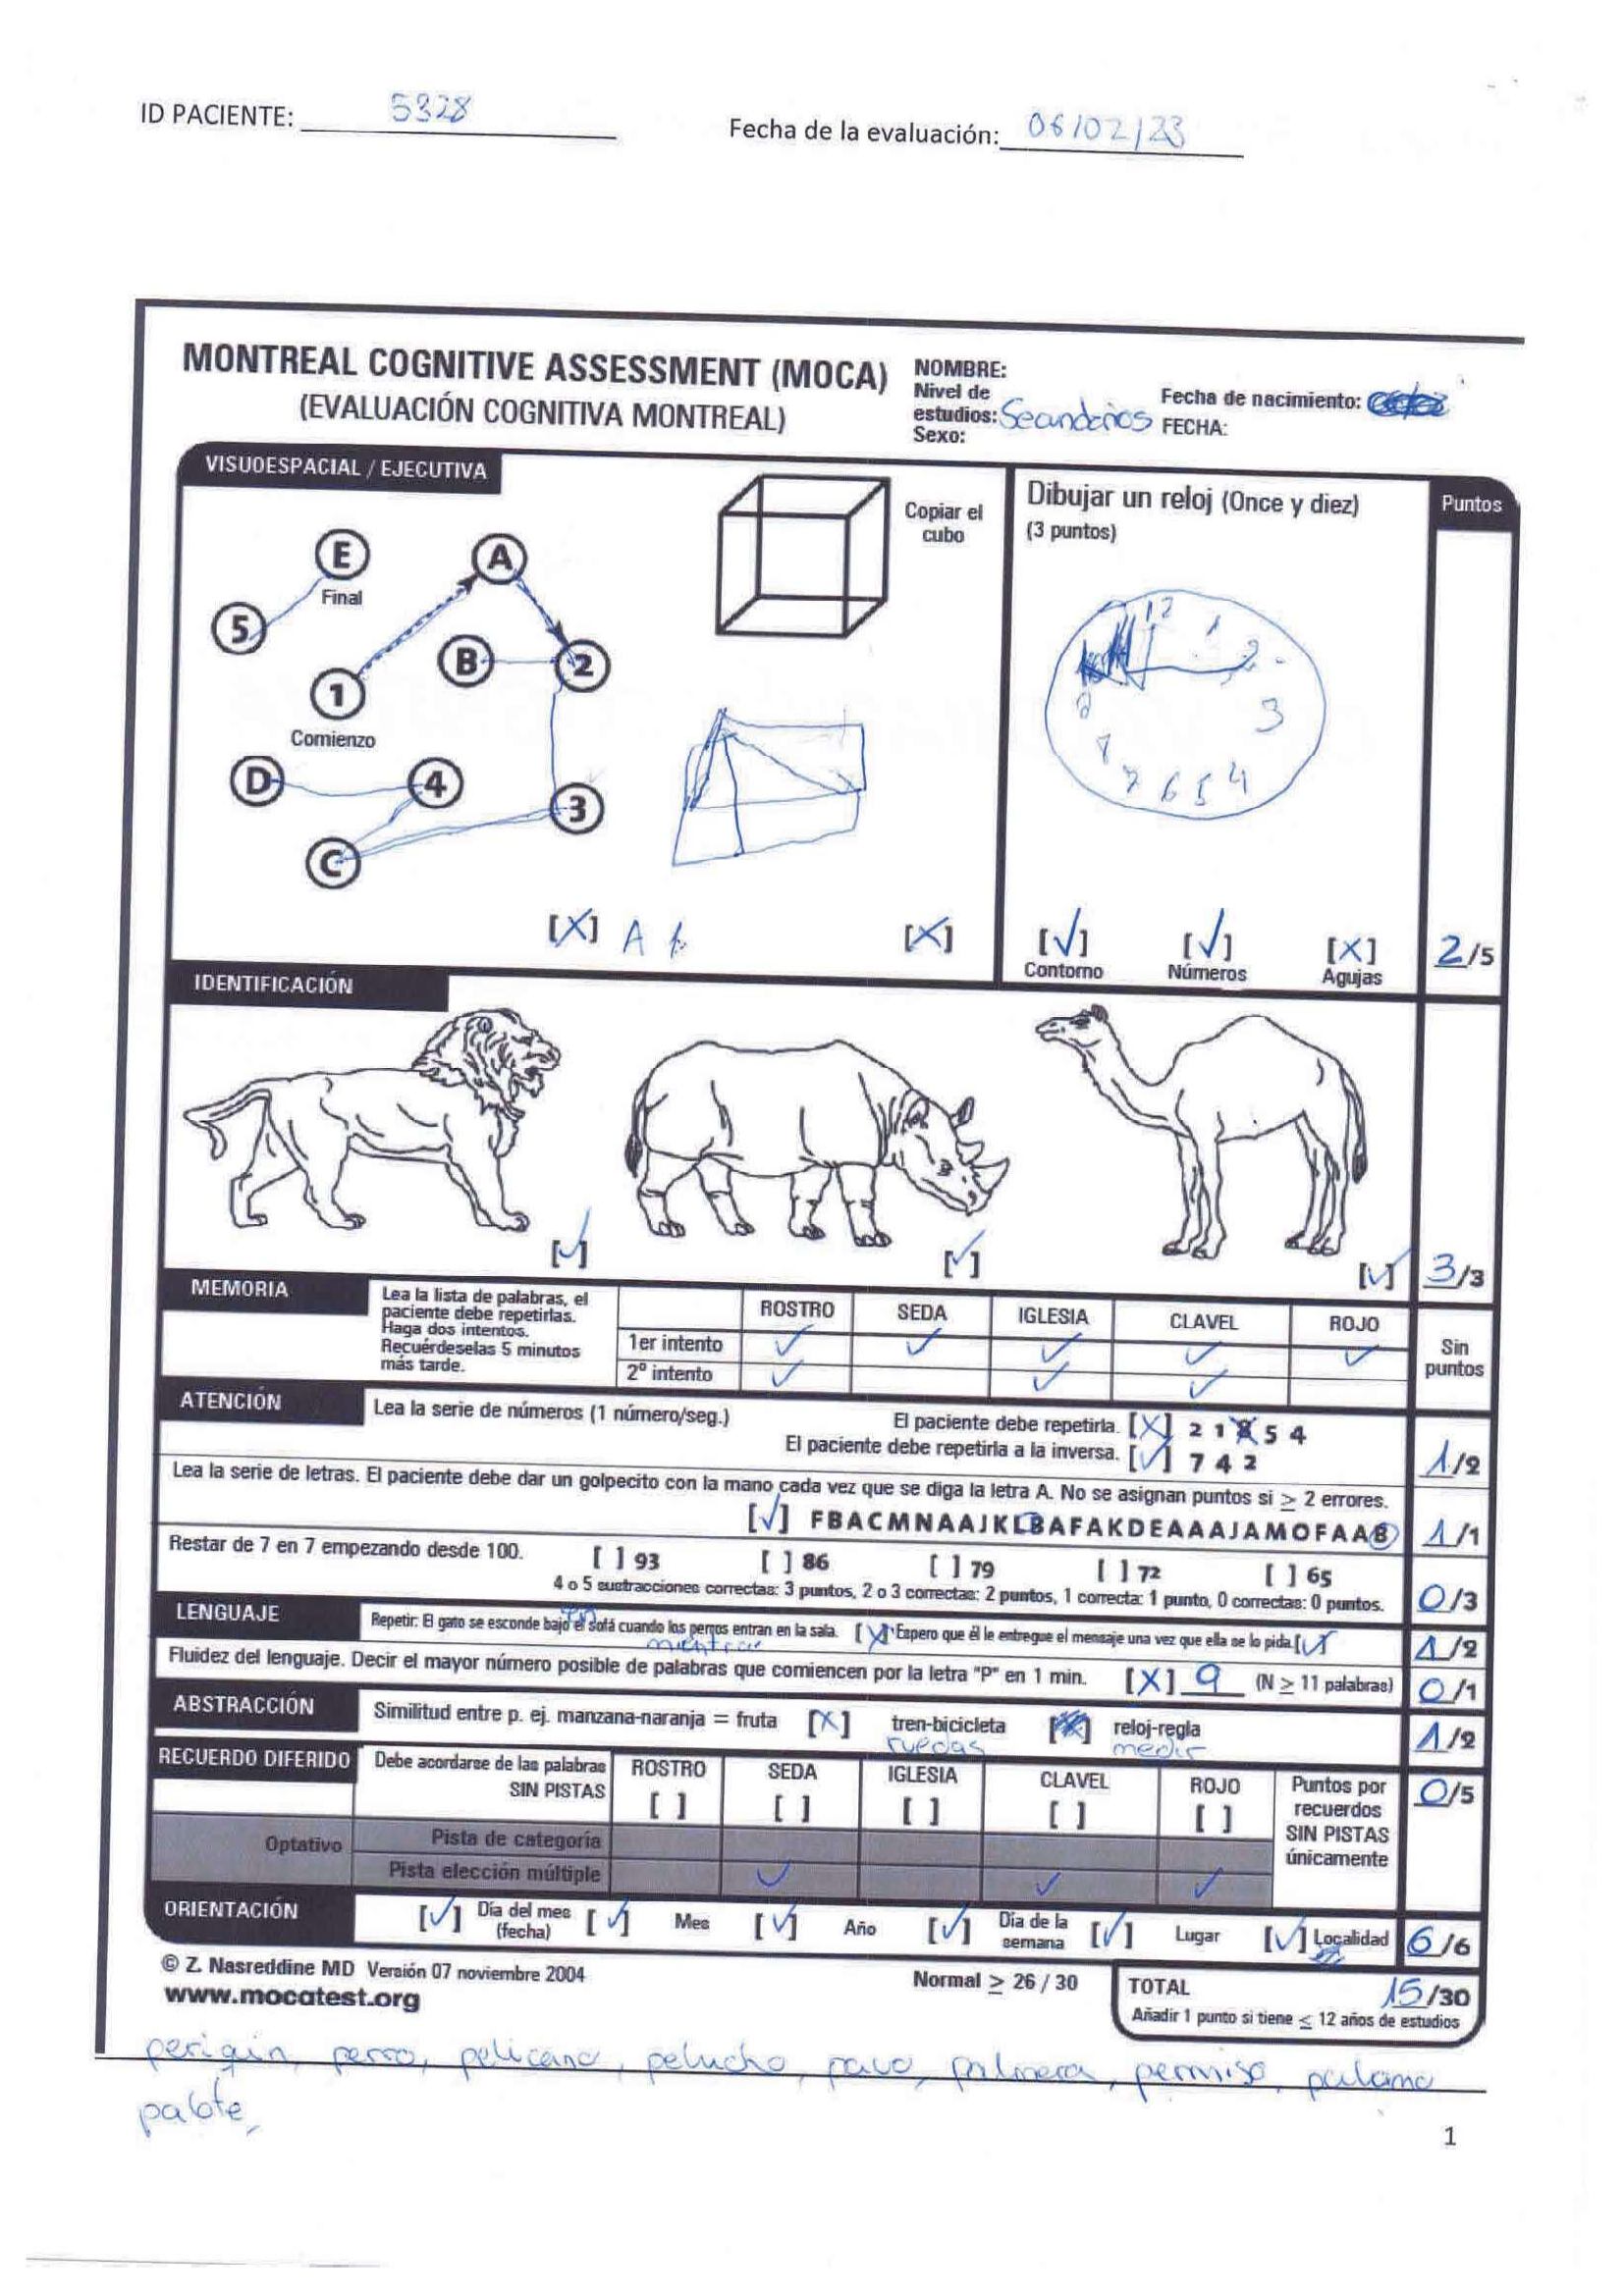 ID PACIENTE: 5328
Fecha de la evaluación: 06/02/23
MONTREAL COGNITIVE ASSESSMENT (MOCA)
(EVALUACIÓN COGNITIVA MONTREAL)
NOMBRE:
Nivel de
estudios: Secundarios
Sexo:
Fecha de nacimiento:
FECHA:
VISUOESPACIAL / EJECUTIVA
E
Final
A
5
B
2
1
Comienzo
D
4
3
C
Copiar el
cubo
[X] A
[X]
Dibujar un reloj (Once y diez)
(3 puntos)
12
1
2
3
4
5
6
7
[✓] Contorno
[✓] Números
[X] Agujas
Puntos
2/5
IDENTIFICACIÓN
[✓]
[✓]
[✓]
3/3
MEMORIA
Lea la lista de palabras, el
paciente debe repetirlas.
Haga dos intentos.
Recuérdeselas 5 minutos
más tarde.
ROSTRO SEDA IGLESIA CLAVEL ROJO
1er intento ✓ ✓ ✓ ✓ ✓
2º intento ✓ ✓ ✓
Sin
puntos
ATENCIÓN
Lea la serie de números (1 número/seg.)
El paciente debe repetirla. [X] 2 1 8 5 4
El paciente debe repetirla a la inversa. [✓] 7 4 2
1/2
Lea la serie de letras. El paciente debe dar un golpecito con la mano cada vez que se diga la letra A. No se asignan puntos si ≥ 2 errores.
[✓] FBACMNAAJKLBAFAKDEAAAJAMOFAAB 1/1
Restar de 7 en 7 empezando desde 100. [ ] 93 [ ] 86 [ ] 79 [ ] 72 [ ] 65
4 o 5 sustracciones correctas: 3 puntos, 2 o 3 correctas: 2 puntos, 1 correcta: 1 punto, 0 correctas: 0 puntos. 0/3
LENGUAJE
en
Repetir: El gato se esconde bajo el sofá cuando los perros entran en la sala. [X] Espero que él le entregue el mensaje una vez que ella se lo pida. [✓] 1/2
mientras
Fluidez del lenguaje. Decir el mayor número posible de palabras que comiencen por la letra "P" en 1 min. [X] 9 (N ≥ 11 palabras) 0/1
ABSTRACCIÓN
Similitud entre p. ej. manzana-naranja = fruta [X] tren-bicicleta [ ] reloj-regla 1/2
ruedas medir
RECUERDO DIFERIDO
Debe acordarse de las palabras
SIN PISTAS
ROSTRO SEDA IGLESIA CLAVEL ROJO
[ ] [ ] [ ] [ ] [ ]
Puntos por
recuerdos
SIN PISTAS
únicamente
0/5
Optativo
Pista de categoría
Pista elección múltiple ✓ ✓ ✓
ORIENTACIÓN
[✓] Día del mes (fecha) [✓] Mes [✓] Año [✓] Día de la semana [✓] Lugar [✓] Localidad 6/6
© Z. Nasreddine MD Versión 07 noviembre 2004
www.mocatest.org
Normal ≥ 26 / 30
TOTAL 15/30
Añadir 1 punto si tiene ≤ 12 años de estudios
perro, pelicano, pelucho, pavo, palmera, permiso,
palote,
1